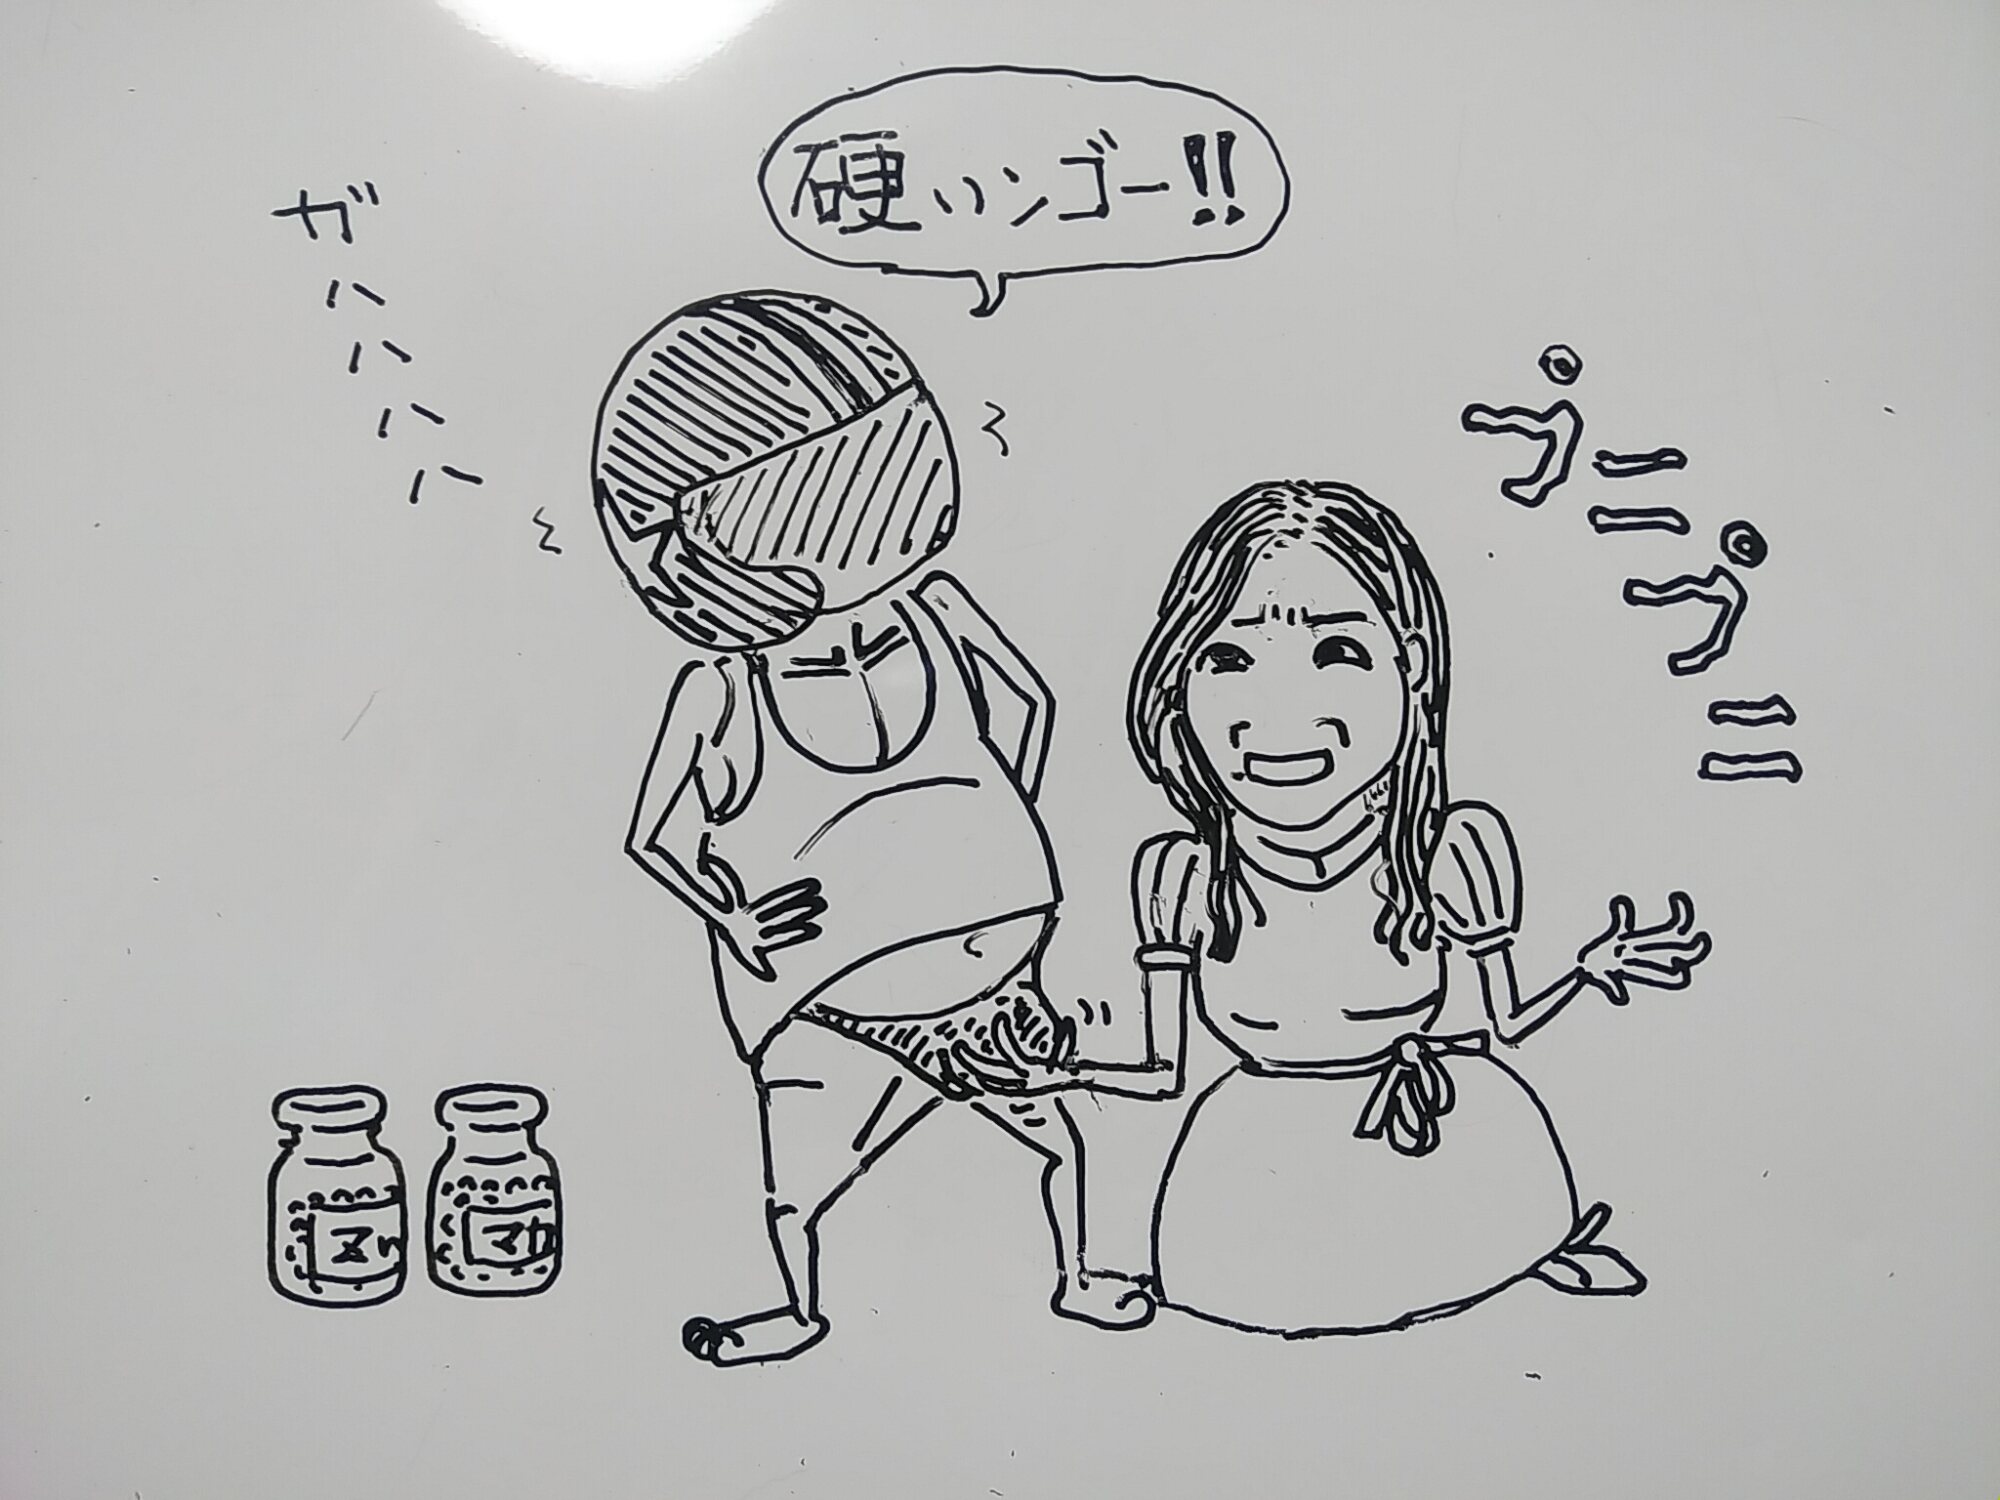 硬いンゴー!!
ガハハハハ
プニプニ
マカ